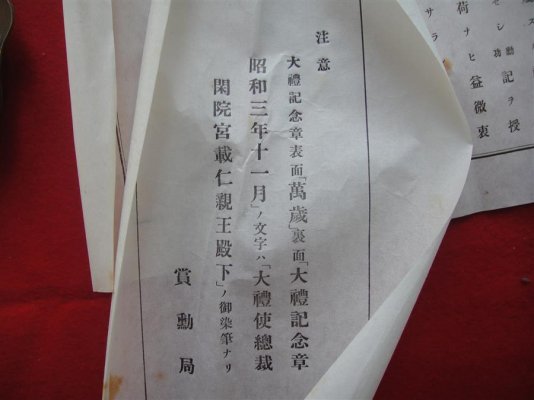 注意
大禮記念章表面「萬歲」裏面「大禮記念章
昭和三年十一月」ノ文字ハ「大禮使總裁
閑院宮載仁親王殿下」ノ御染筆ナリ
賞勳局
勳記ヲ授
セシ功
荷ナヒ益微衷
サラ